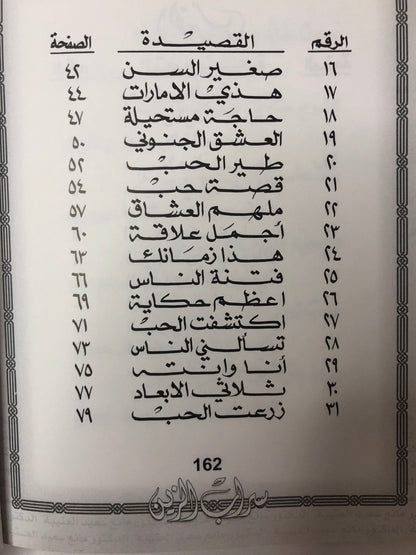 الرقم القصيدة الصفحة
١٦ صغير السن ٤٢
١٧ هذي الامارات ٤٤
١٨ حاجة مستحيلة ٤٧
١٩ العشق الجنوني ٥٠
٢٠ طير الحب ٥٢
٢١ قصة حب ٥٤
٢٢ ملهم العشاق ٥٧
٢٣ أجمل علاقة ٦٠
٢٤ هذا زمانك ٦٣
٢٥ فتنة الناس ٦٦
٢٦ اعظم حكاية ٦٩
٢٧ اكتشفت الحب ٧١
٢٨ تسألني الناس ٧٣
٢٩ أنا وانته ٧٥
٣٠ ثلاثي الابعاد ٧٧
٣١ زرعت الحب ٧٩
162
سراب الزين